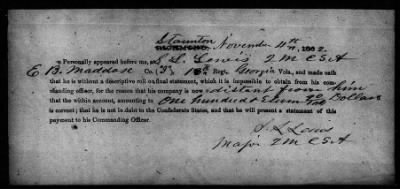 Staunton
RICHMOND, November 11th 1862.
Personally appeared before me, S. L. Lewis 2 M C S A
E B Maddox Co. (F) 18th Regt. Georgia Vols., and made oath
that he is without a descriptive roll or final statement, which it is impossible to obtain from his com-
manding officer, for the reason that his company is now distant from him
that the within account, amounting to One hundred Eleven Dollars
is correct; that he is not in debt to the Confederate States, and that he will present a statement of this
payment to his Commanding Officer.
S. L. Lewis
Major 2 M C S A